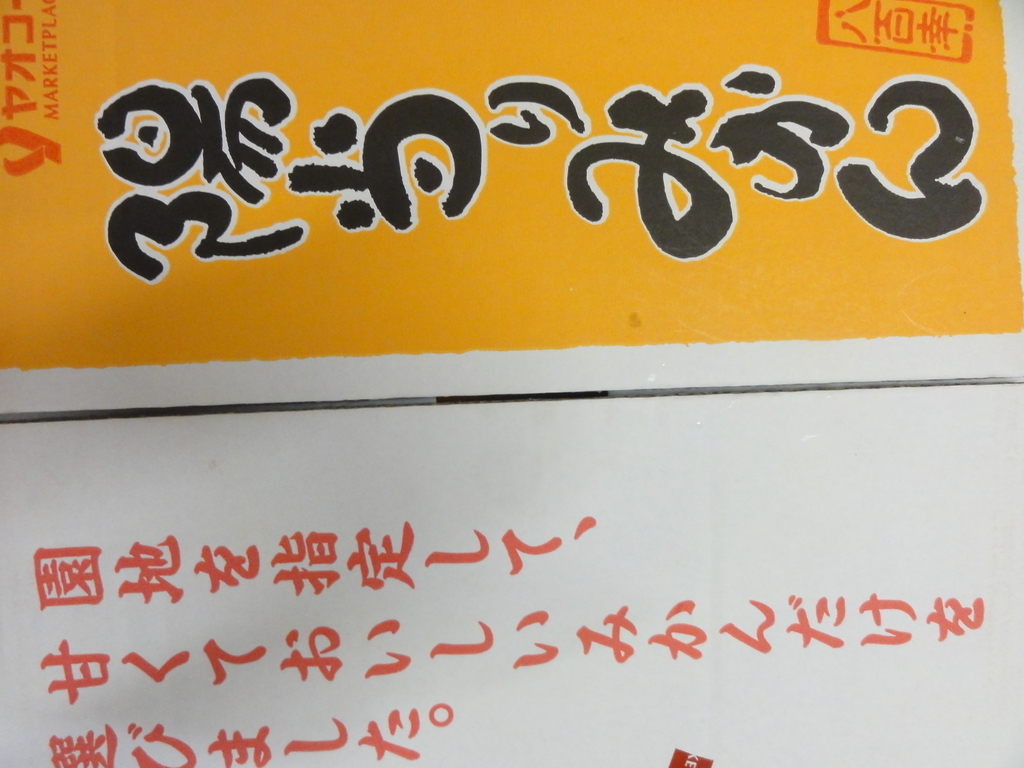 ヤオコー
MARKETPLAC
のみかん
八百幸
園地を指定して、
甘くておいしいみかんだけを
選びました。